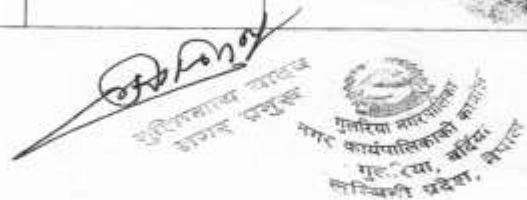 यादव
नगर प्रमुख
गुलरिया नगरपालिका
नगर कार्यपालिकाको कार्यालय
बर्दिया
लुम्बिनी प्रदेश, नेपाल